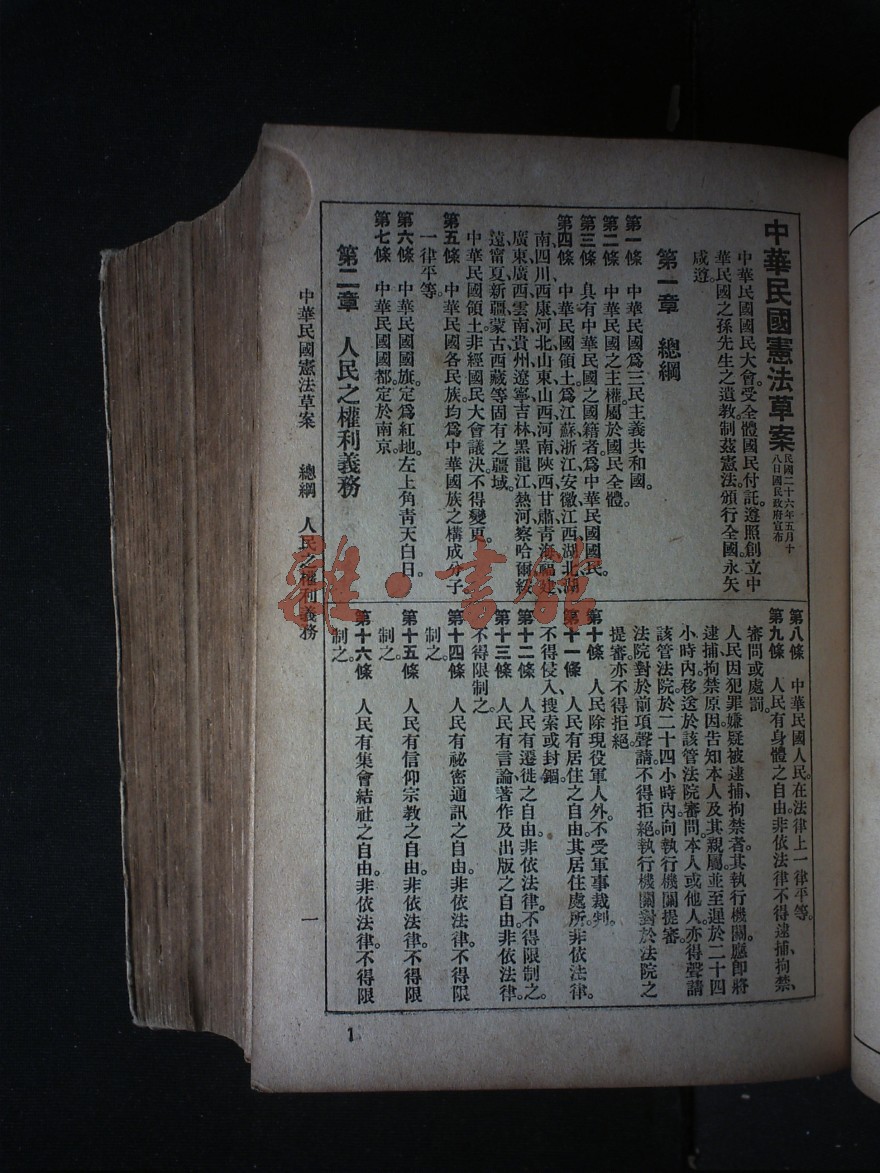 中華民國憲法草案
民國二十六年五月十
八日國民政府宣布
中華民國國民大會受全體國民付託。遵照創立中
華民國之孫先生之遺教制茲憲法頒行全國永矢
咸遵。
第一章　總綱
第一條　中華民國爲三民主義共和國。
第二條　中華民國之主權屬於國民全體。
第三條　具有中華民國之國籍者爲中華民國國民。
第四條　中華民國領土爲江蘇、浙江、安徽、江西、湖北、湖
南、四川、西康、河北、山東、山西、河南、陝西、甘肅、青海、福建、
廣東、廣西、雲南、貴州、遼寧、吉林、黑龍江、熱河、察哈爾、綏
遠、甯夏、新疆、蒙古、西藏等固有之疆域。
中華民國領土非經國民大會議決。不得變更。
第五條　中華民國各民族均爲中華國族之構成分子
一律平等。
第六條　中華民國國旗。定爲紅地。左上角青天白日。
第七條　中華民國國都定於南京。
第二章　人民之權利義務
第八條　中華民國人民。在法律上一律平等。
第九條　人民有身體之自由。非依法律不得逮捕、拘禁、
審問或處罰。
人民因犯罪嫌疑被逮捕、拘禁者。其執行機關。應即將
逮捕、拘禁原因。告知本人及其親屬。並至遲於二十四
小時內。移送於該管法院審問。本人或他人。亦得聲請
該管法院。於二十四小時內。向執行機關提審。
法院對於前項聲請。不得拒絕。執行機關對於法院之
提審亦不得拒絕。
第十條　人民除現役軍人外。不受軍事裁判。
第十一條　人民有居住之自由。其居住處所。非依法律。
不得侵入、搜索或封錮。
第十二條　人民有遷徙之自由。非依法律。不得限制之。
第十三條　人民有言論著作及出版之自由。非依法律。
不得限制之。
第十四條　人民有祕密通訊之自由。非依法律。不得限
制之。
第十五條　人民有信仰宗教之自由。非依法律。不得限
制之。
第十六條　人民有集會結社之自由。非依法律不得限
制之。
中華民國憲法草案　總綱　人民之權利義務
一
1
雜·書館